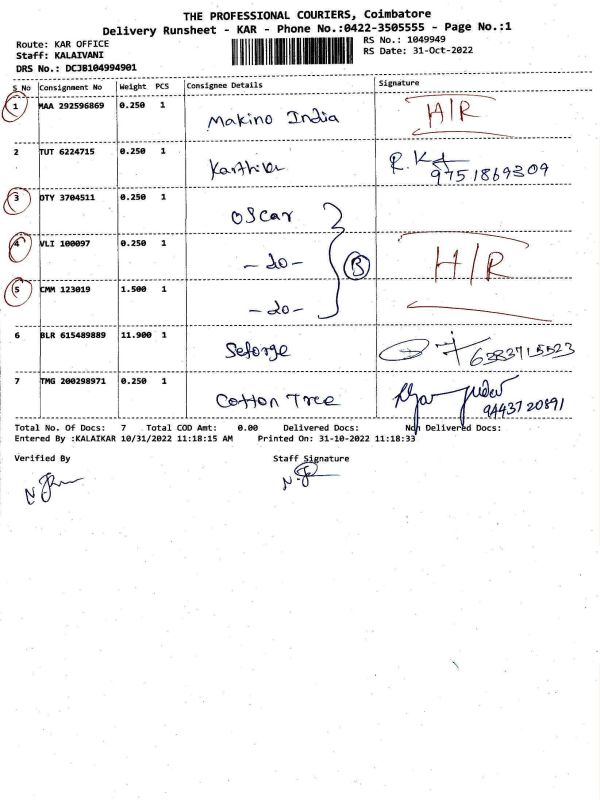 THE PROFESSIONAL COURIERS, Coimbatore
Delivery Runsheet - KAR - Phone No.:0422-3505555 - Page No.:1
Route: KAR OFFICE
RS No.: 1049949
Staff: KALAIVANI
RS Date: 31-Oct-2022
DRS No.: DCJB104994901
S No Consignment No Weight PCS Consignee Details Signature
1 MAA 292596869 0.250 1 Makino India H/R
2 TUT 6224715 0.250 1 Karthika R.K
9751869309
3 OTY 3704511 0.250 1 Oscar
4 VLI 100097 0.250 1 -do- B H/R
5 CMM 123019 1.500 1 -do-
6 BLR 615489889 11.900 1 Seforge 6383715523
7 TMG 200298971 0.250 1 Cotton Tree
9443720891
Total No. Of Docs: 7 Total COD Amt: 0.00 Delivered Docs: Non Delivered Docs:
Entered By :KALAIKAR 10/31/2022 11:18:15 AM Printed On: 31-10-2022 11:18:33
Verified By Staff Signature